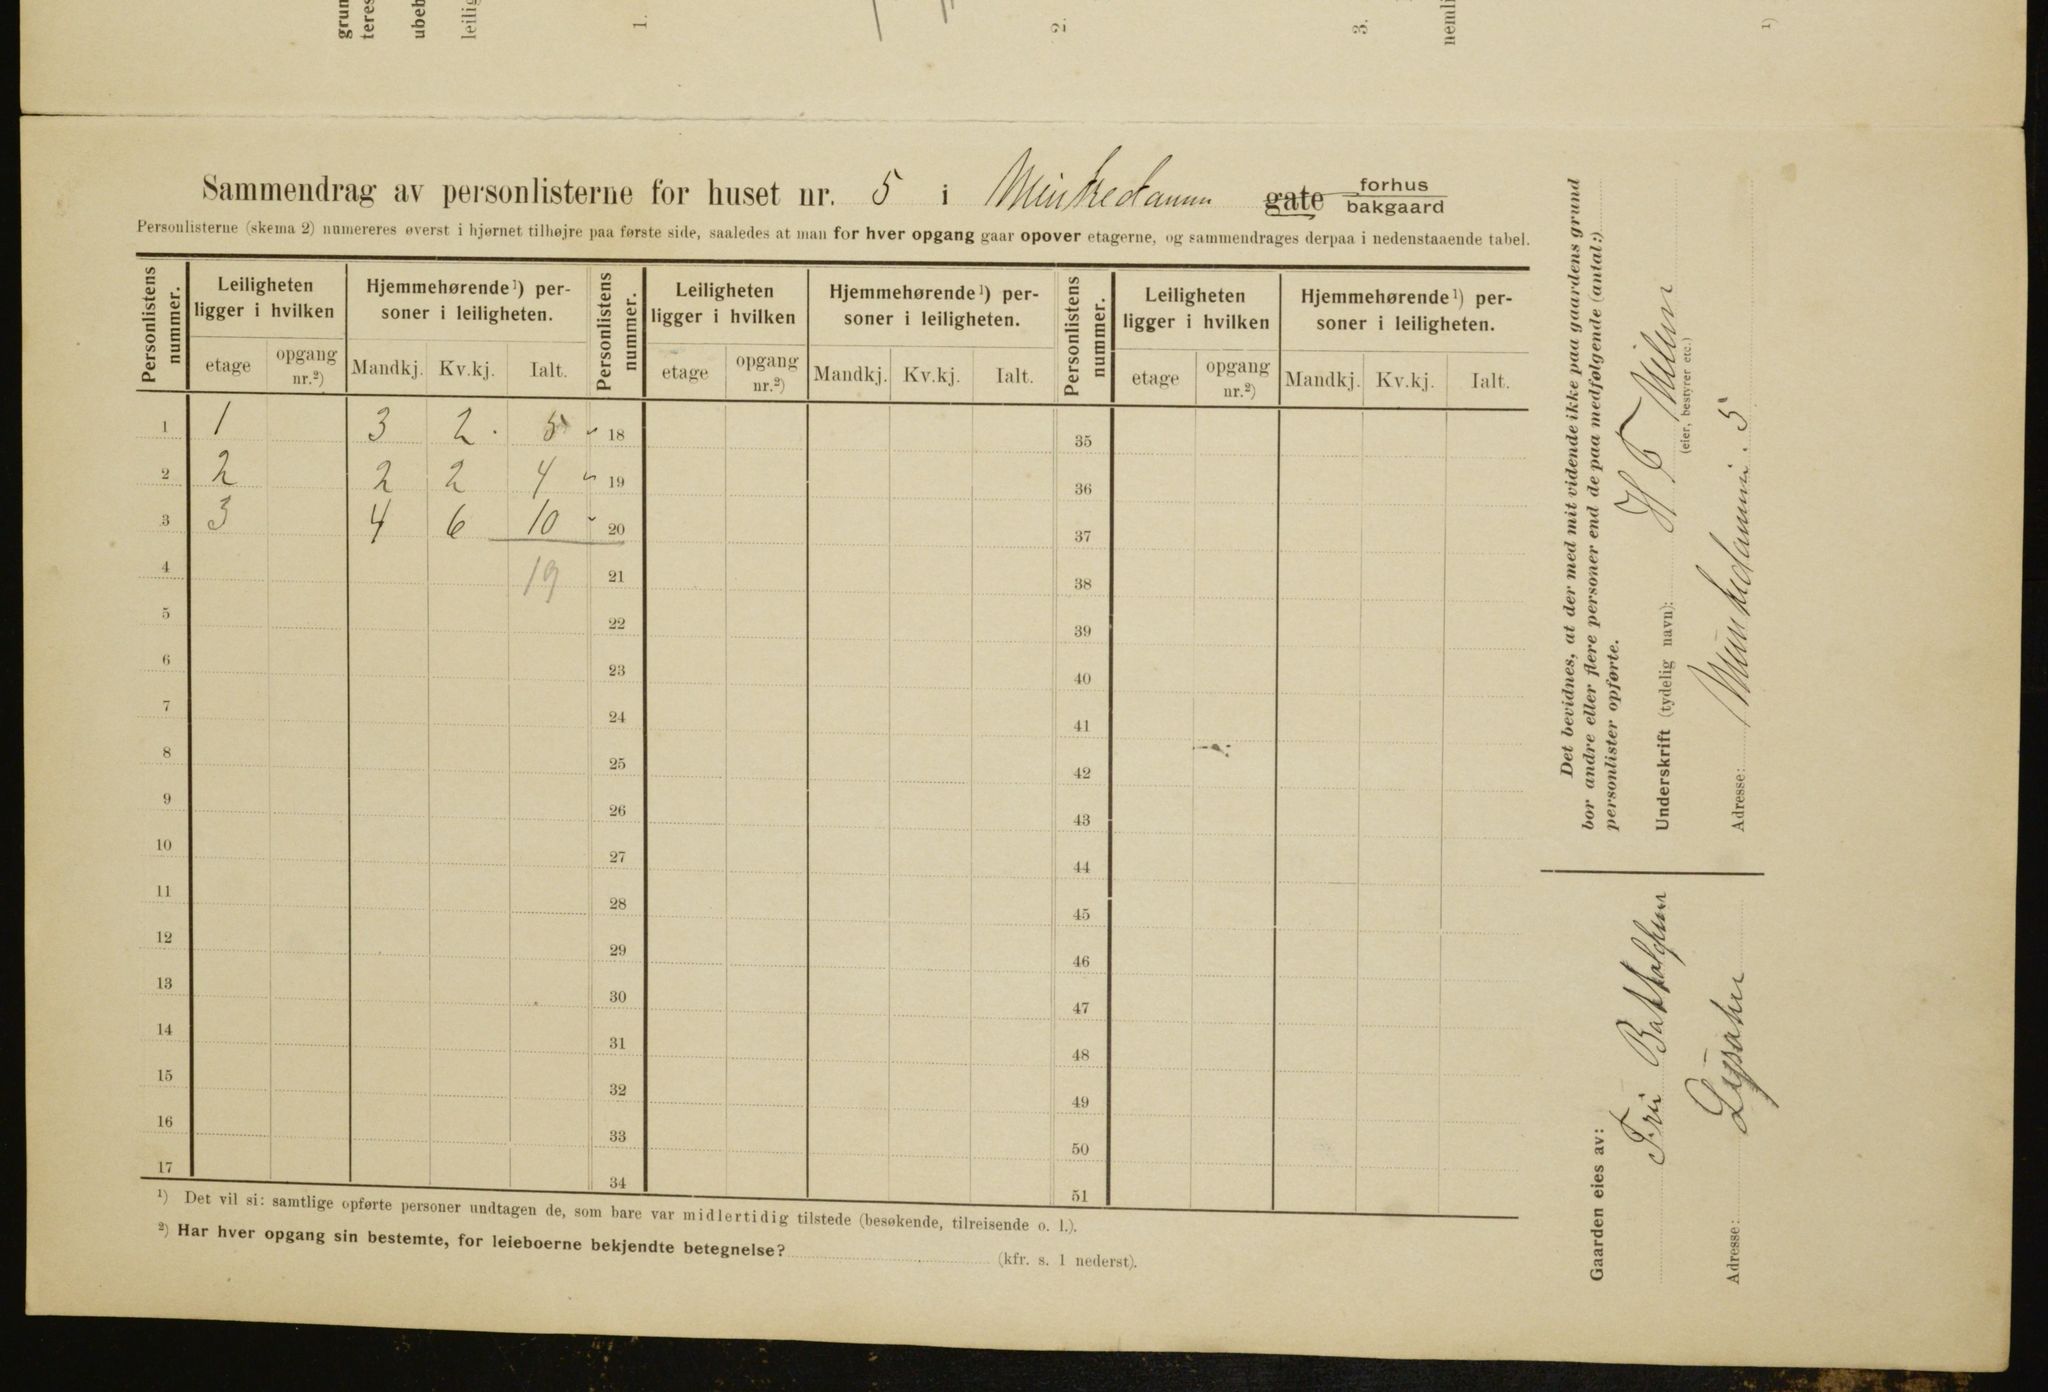 grun
teres
ubeb
leilig
1.
2.
3.
nemli
1)
Sammendrag av personlisterne for huset nr. 5 i Munkedamm gate forhus bakgaard
Personlisterne (skema 2) numereres øverst i hjørnet tilhøjre paa første side, saaledes at man for hver opgang gaar opover etagerne, og sammendrages derpaa i nedenstaaende tabel.
Personlistens nummer. Leiligheten ligger i hvilken Hjemmehørende¹) personer i leiligheten. Personlistens nummer. Leiligheten ligger i hvilken Hjemmehørende¹) personer i leiligheten. Personlistens nummer. Leiligheten ligger i hvilken Hjemmehørende¹) personer i leiligheten.
etage opgang nr.²) Mandkj. Kv.kj. Ialt. etage opgang nr.²) Mandkj. Kv.kj. Ialt. etage opgang nr.²) Mandkj. Kv.kj. Ialt.
1 1 3 2 5 18 35
2 2 2 2 4 19 36
3 3 4 6 10 20 37
4 19 21 38
5 22 39
6 23 40
7 24 41
8 25 42
9 26 43
10 27 44
11 28 45
12 29 46
13 30 47
14 31 48
15 32 49
16 33 50
17 34 51
¹) Det vil si: samtlige opførte personer undtagen de, som bare var midlertidig tilstede (besøkende, tilreisende o. l.).
²) Har hver opgang sin bestemte, for leieboerne bekjendte betegnelse? (kfr. s. 1 nederst).
Det bevidnes, at der med mit vidende ikke paa gaardens grund
bor andre eller flere personer end de paa medfølgende (antal:)
personlister opførte.
Underskrift (tydelig navn): H T
(eier, bestyrer etc.)
Adresse: Munkedammv. 5
Gaarden eies av:
Fru
Adresse: Lysaker